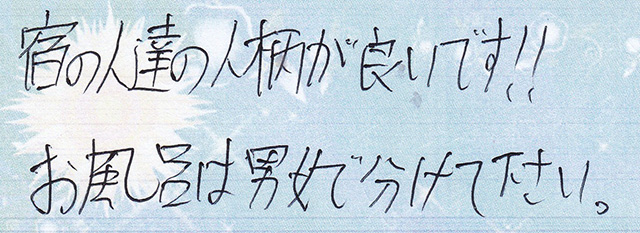 宿の人達の人柄が良いです!!
お風呂は男女で分けて下さい。